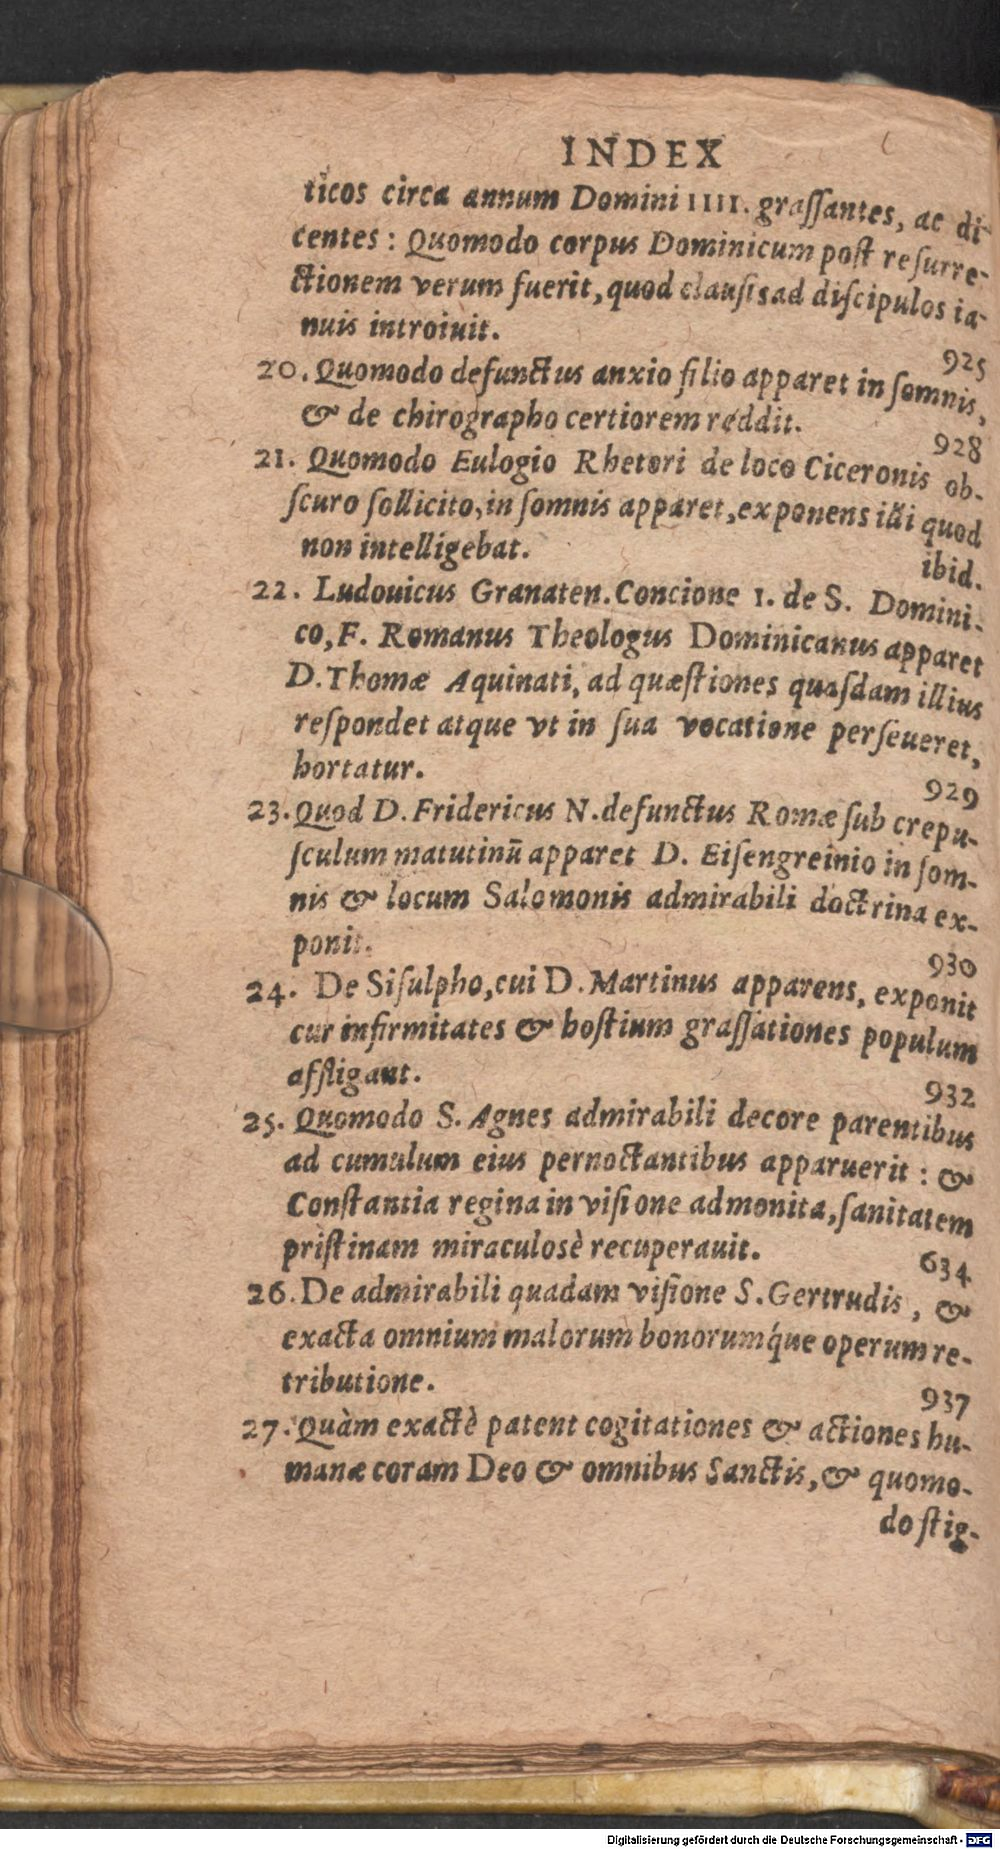 INDEX
ticos circa annum Domini IIII. graſſantes, ac di-
centes: Quomodo corpus Dominicum poſt reſurre-
ctionem verum fuerit, quod clauſis ad diſcipulos ia-
nuis introiuit. 925
20. Quomodo defunctus anxio filio apparet in ſomnis,
& de chirographo certiorem reddit. 928
21. Quomodo Eulogio Rhetori de loco Ciceronis ob-
ſcuro ſollicito, in ſomnis apparet, exponens illi quod
non intelligebat. ibid.
22. Ludouicus Granaten. Concione 1. de S. Domini-
co, F. Romanus Theologus Dominicanus apparet
D. Thomæ Aquinati, ad quæſtiones quaſdam illius
reſpondet atque vt in ſua vocatione perſeueret,
hortatur. 929
23. Quod D. Fridericus N. defunctus Romæ ſub crepu-
ſculum matutinū apparet D. Eiſengreinio in ſom-
nis & locum Salomonis admirabili doctrina ex-
ponit. 930
24. De Siſulpho, cui D. Martinus apparens, exponit
cur infirmitates & hoſtium graſſationes populum
affligant. 932
25. Quomodo S. Agnes admirabili decore parentibus
ad cumulum eius pernoctantibus apparuerit: &
Conſtantia regina in viſione admonita, ſanitatem
priſtinam miraculosè recuperauit. 634
26. De admirabili quadam viſione S. Gertrudis, &
exacta omnium malorum bonorumq́ue operum re-
tributione. 937
27. Quàm exactè patent cogitationes & actiones hu-
manæ coram Deo & omnibus Sanctis, & quomo-
do ſtig-
Digitalisierung gefördert durch die Deutsche Forschungsgemeinschaft - DFG